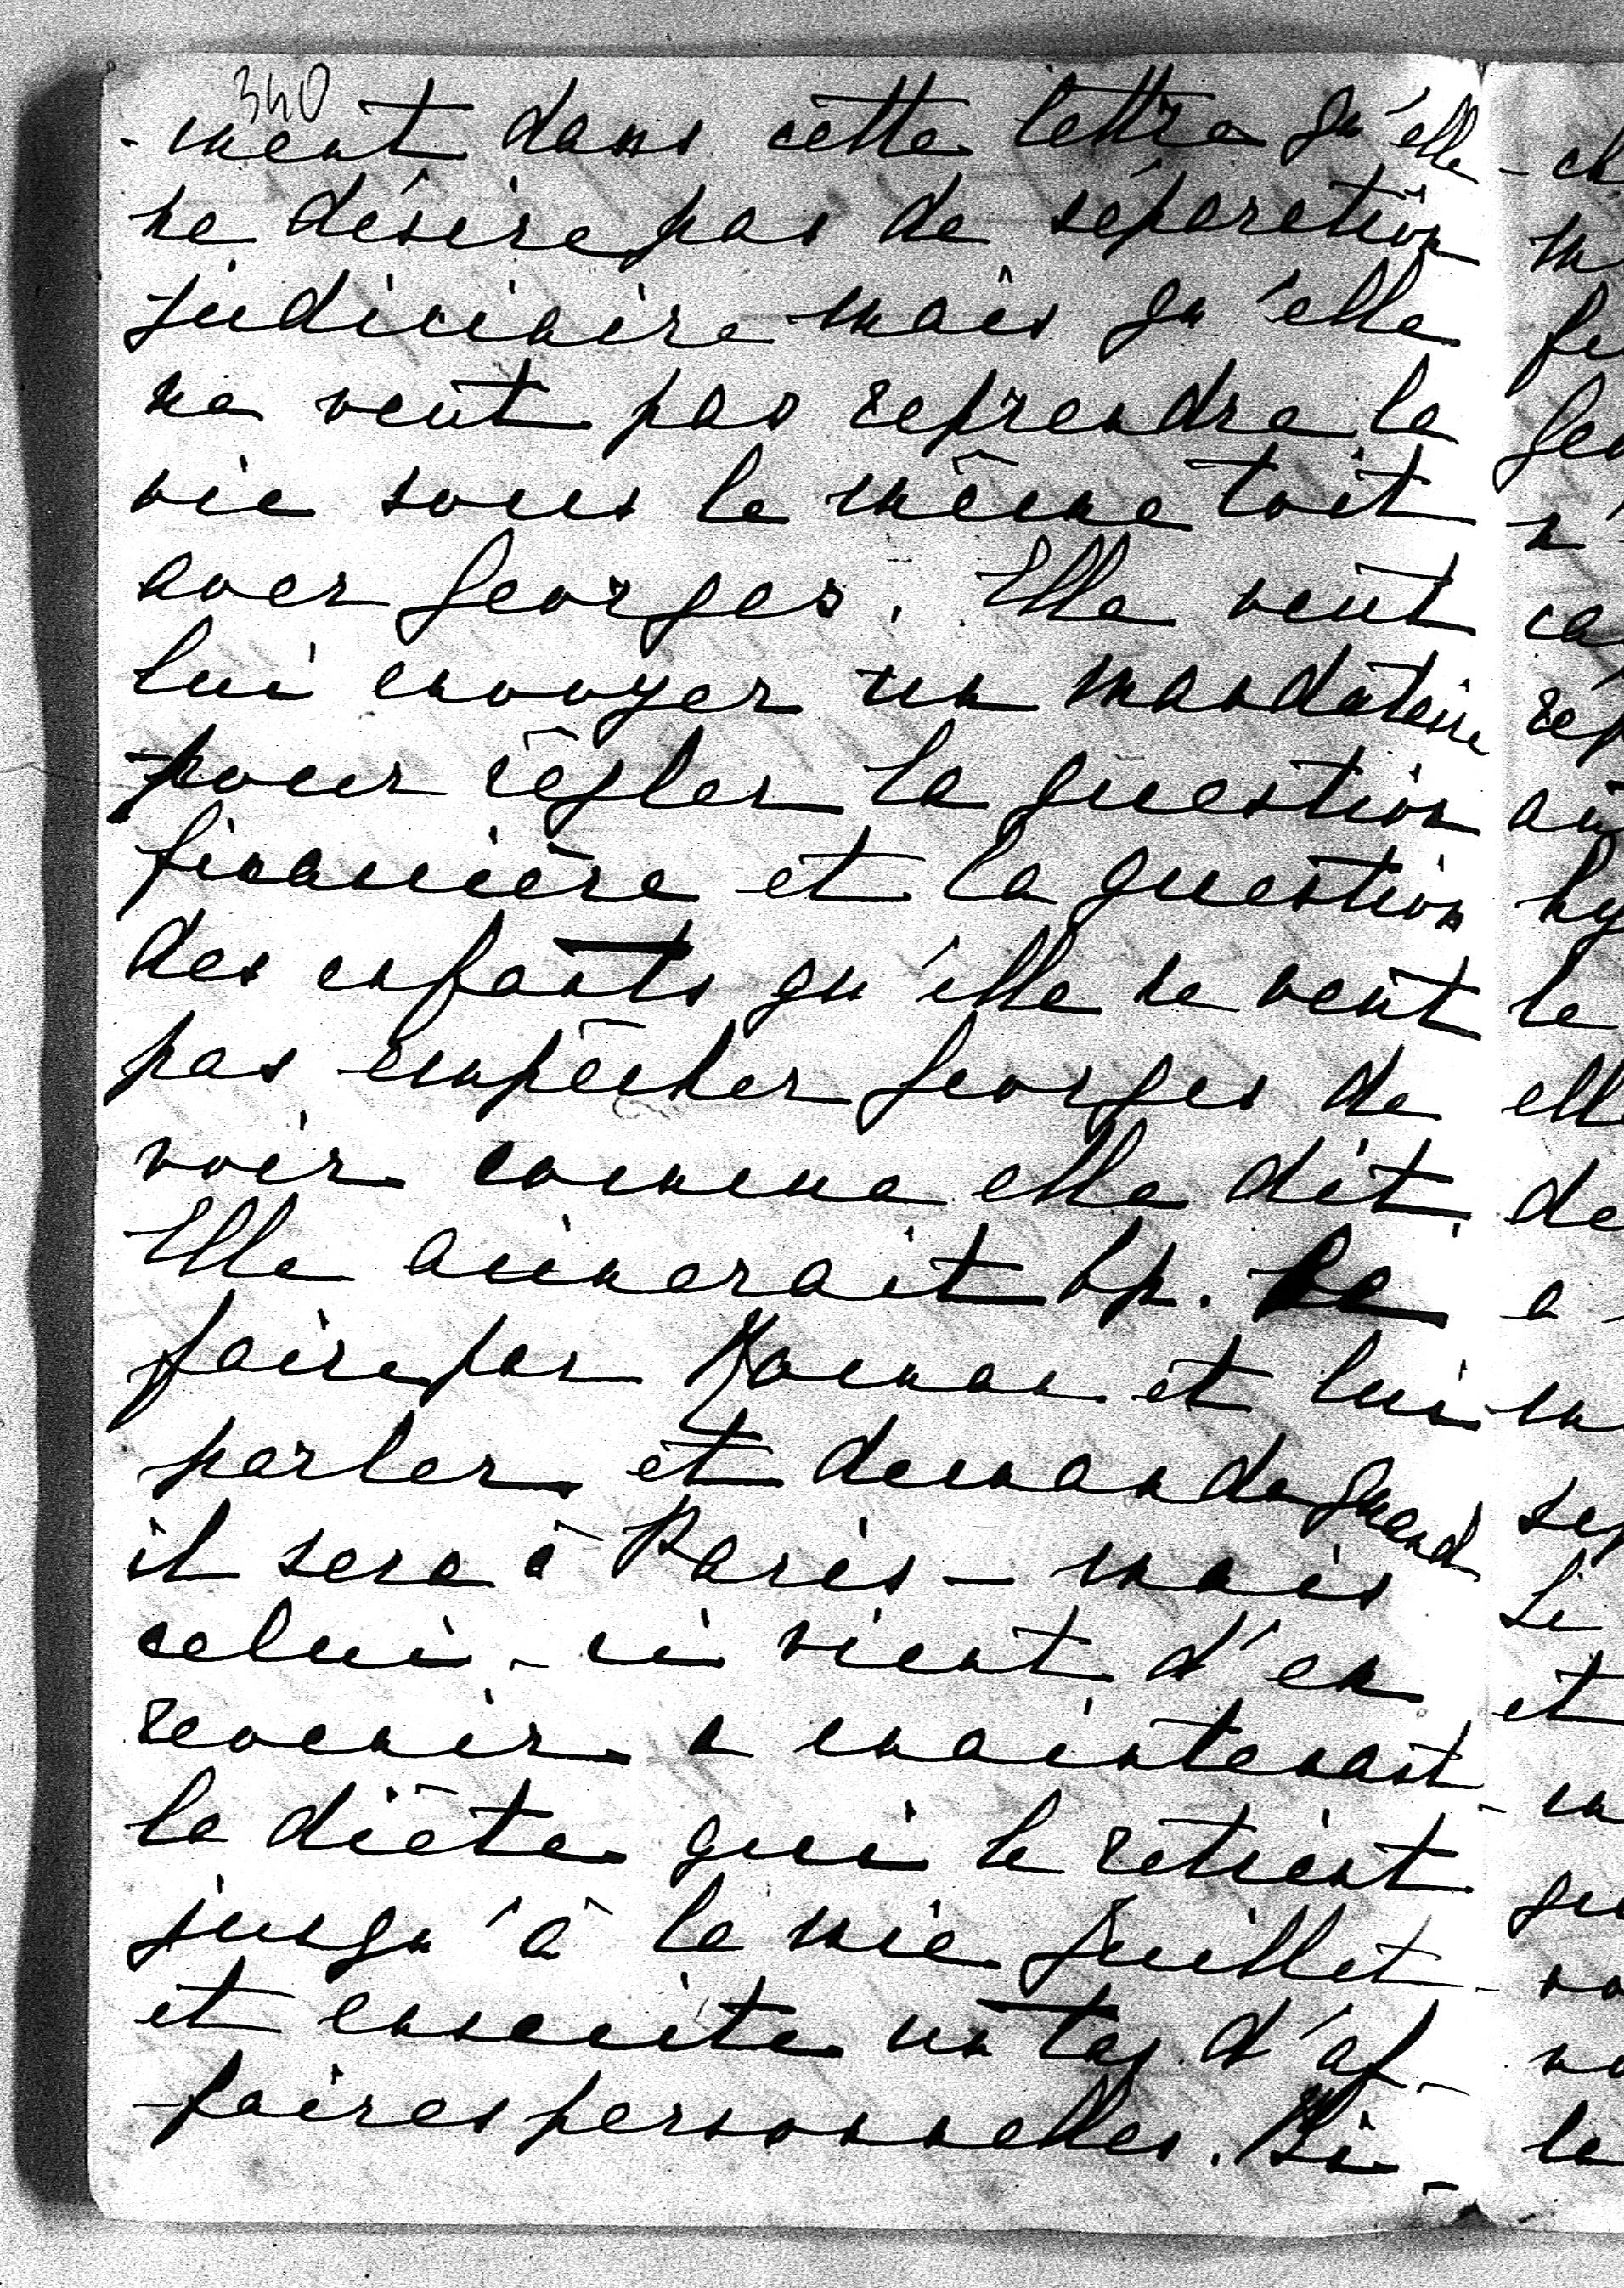 340
-ment dans cette lettre qu'elle
ne désire pas de séparation
judiciaire mais qu'elle
ne veut pas reprendre la
vie sous le même toit
avec Georges. Elle veut
lui envoyer un mandataire
pour régler la question
financière et la question
des enfants qu'elle ne veut
pas empêcher Georges de
voir comme elle dit.
Elle aimerait bp. le
faire par Roman et lui
parler et demande quand
il sera à Paris - mais
celui-ci vient d'en
revenir & maintenant
la diète qui le retient
jusqu'à la mie Juillet
et ensuite un tas d'af-
-faires personnelles. Bi-